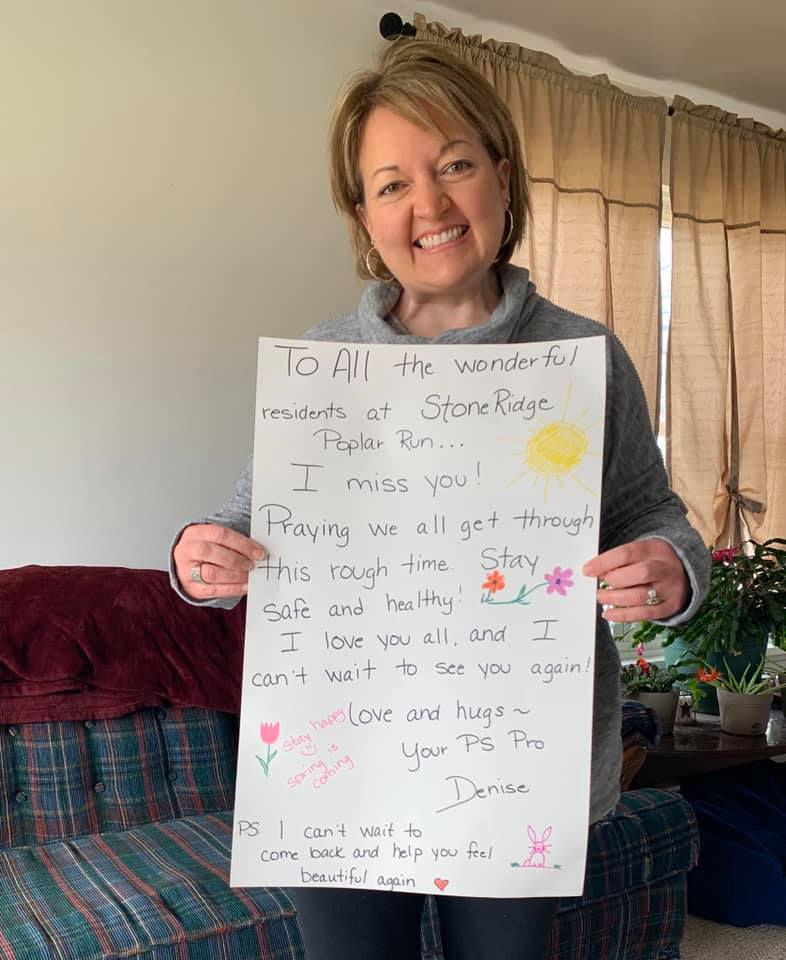 To All the wonderful
residents at StoneRidge
Poplar Run...
I miss you!
Praying we all get through
this rough time. Stay
safe and healthy!
I love you all, and I
can't wait to see you again!
Love and hugs ~
Your PS Pro
Denise
Stay happy
Spring is
coming
PS. I can't wait to
come back and help you feel
beautiful again